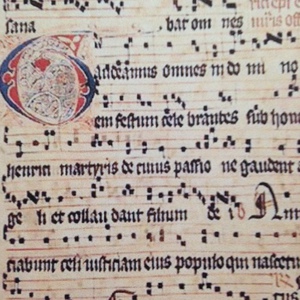 sana bat om nes
Gaudeamus omnes in do mi no
em festum cele brantes sub hono
henrici martyris de cuius passio ne gaudent a
ge li et collau dant filium de i
ciabunt celi iusticiam eius populo qui nascetu